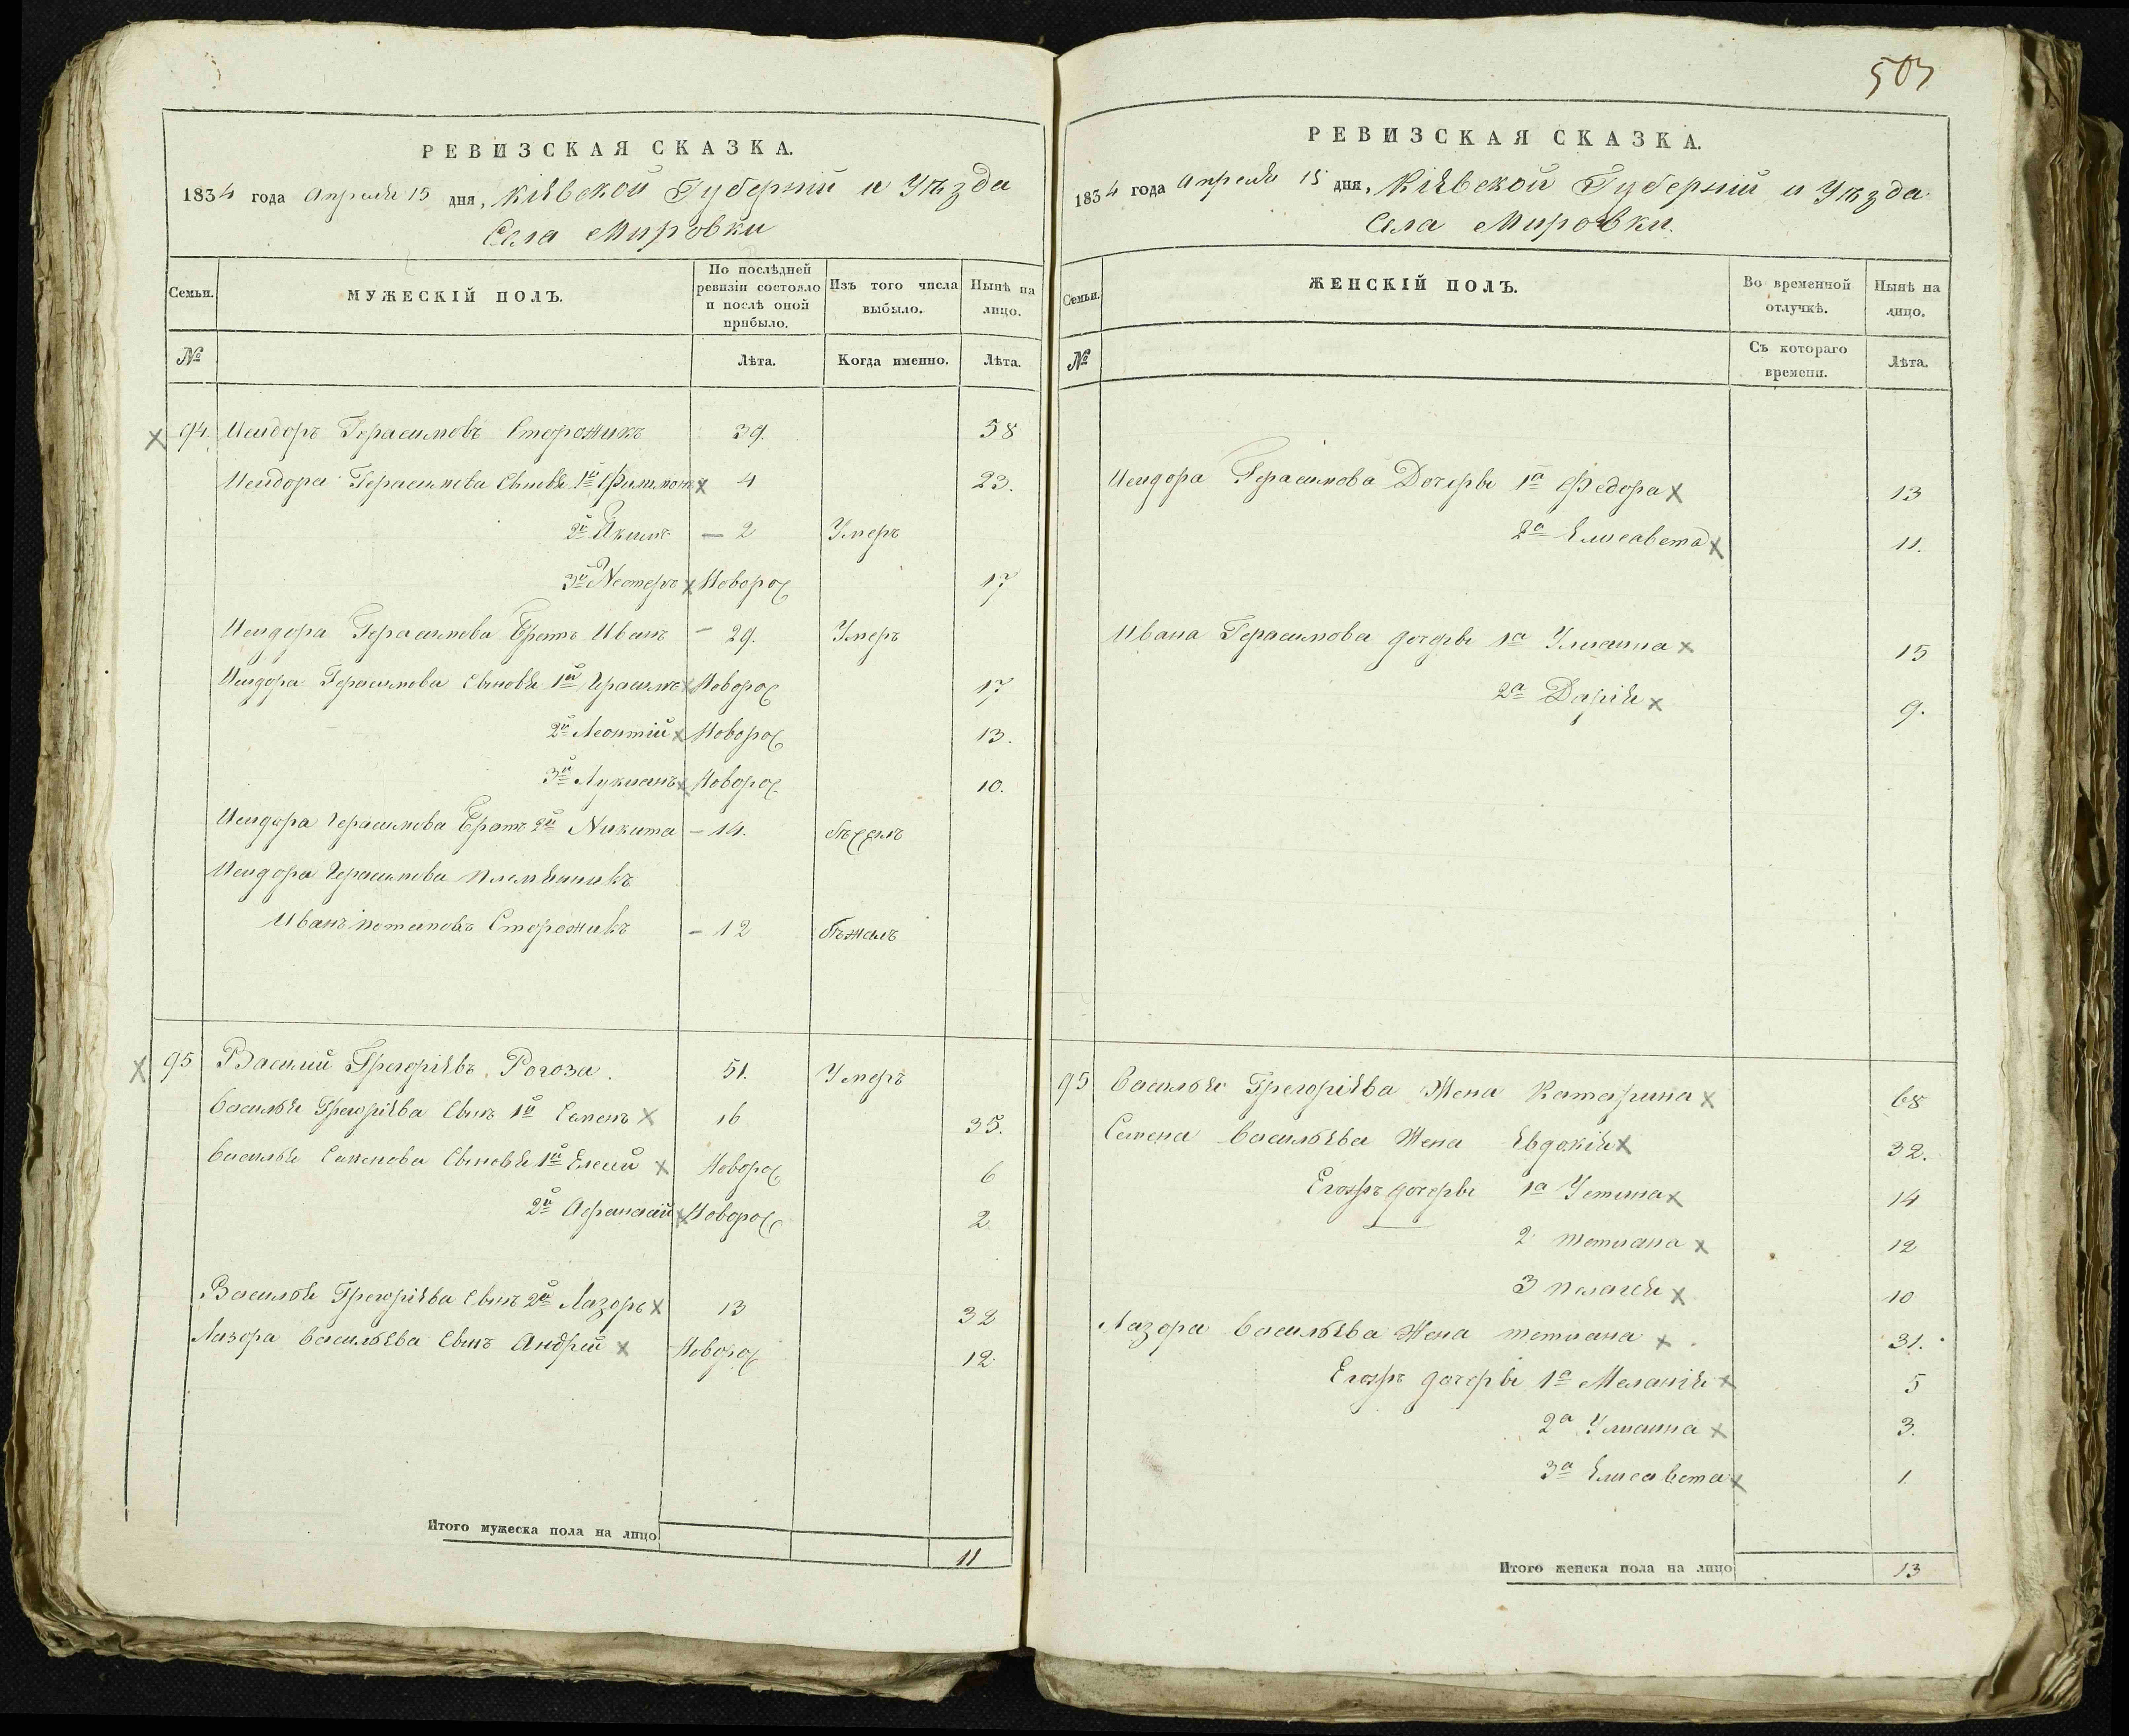 507
РЕВИЗСКАЯ СКАЗКА.
1834 года Апреля 15 дня, Кіевской Губерніи и Уѣзда
Села Мировки
Семьи.
МУЖЕСКІЙ ПОЛЪ.
По послѣдней ревизіи состояло и послѣ оной прибыло.
Изъ того числа выбыло.
Нынѣ на лицо.
№
Лѣта.
Когда именно.
Лѣта.
94. Исидоръ Герасимовъ Сторожикъ 39. 58
Исидора Герасимова Сыновя 1й Филимонъ 4 23.
2й Якимъ — 2 Умеръ
3й Нестеръ Новорож 17
Исидора Герасимова Братъ Иванъ — 29. Умеръ
Исидора Герасимова Сыновя 1й Герасимъ Новорож 17
2й Леонтій Новорож 13.
3й Лукианъ Новорож 10.
Исидора Герасимова Братъ 2й Никита — 14. бѣжалъ
Исидора Герасимова племянникъ
Иванъ Потаповъ Сторожикъ — 12 бѣжалъ
95 Василий Грегоріевъ Рогоза. 51. Умеръ
Василья Грегоріева Сынъ 1й Семенъ 16 35.
Василья Семенова Сыновя 1й Елсей Новорож 6
2й Афанасий Новорож 2
Василья Грегоріева Сынъ 2й Лазоръ 13 32
Лазора Васильева Сынъ Андрей Новорож 12
Итого мужеска пола на лицо 11
РЕВИЗСКАЯ СКАЗКА.
1834 года Апреля 15 дня, Кіевской Губерніи и Уѣзда
Села Мировки.
Семьи.
ЖЕНСКІЙ ПОЛЪ.
Во временной отлучкѣ.
Нынѣ на лицо.
№
Съ котораго времени.
Лѣта.
Исидора Герасимова Дочеры 1а Федора 13
2а Елисавета 11.
Ивана Герасимова дочеры 1а Ульянна 15
2а Дарія 9.
95 Василья Грегоріева Жена Катарина 68
Семена Васильева Жена Евдокія 32.
Егожъ дочеры 1а Устина 14
2 Тетиана 12
3 Пелагея 10
Лазора Васильева Жена Тетиана 31.
Егожъ дочеры 1а Меланія 5
2а Ульянна 3.
3а Елисавета 1
Итого женска пола на лицо 13